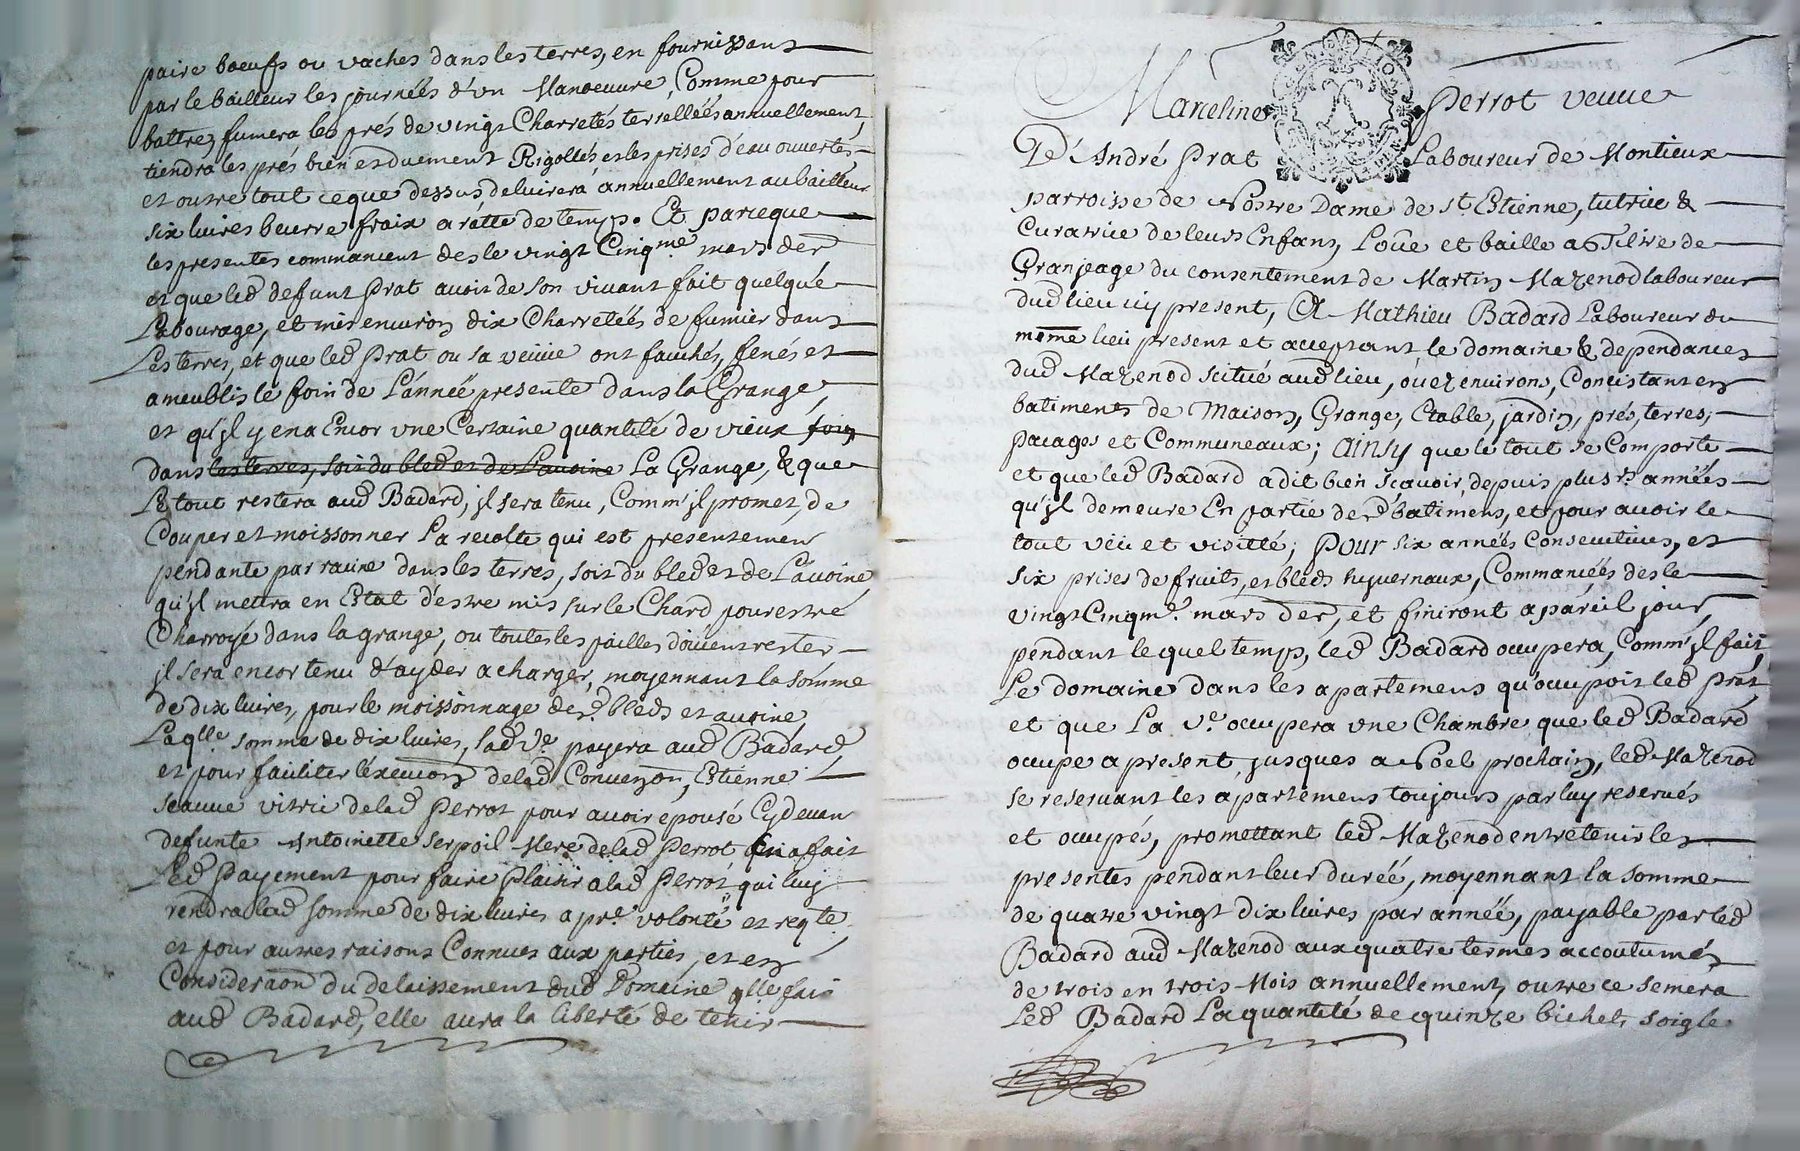 paire bœufs ou vaches dans les terres, en fournissant
par le bailleur les journées d'un Manoeuvre, Comme pour
battre, fumera les prés de vingt Charretés terréllées annuellement,
tiendra les prés bien et duement Rigollés et les prises d'eau ouvertes
et outre tout ce que dessus deluirera annuellement au bailleur
six liures beurre fraix a rätte de temps. Et parceque
les presentes commancent des le vingt Cinqme. mars der
et que led defunt Prat auoit de son viuant fait quelque
Labourage, et mis enuiron dix Charretées de fumier dans
Les terres, et que led Prat ou sa veuue ont fauchés, fenés et
ameublis le foin de L'année presente dans la Grange,
et qu'jl y en a Encor vne Certaine quantité de vieux foin
dans les terres, soit du bled et de L'auoine La Grange, & que
Le tout restera aud Badard, jl sera tenu, Comm' jl promet, de
Couper et moissonner La recolte qui est presentement
pendante par racine dans les terres, soit du bled et de L'auoine
qu'jl mettra en Etat d'estre mis sur le Chard pour estre
Charroyé dans la grange, ou toutes les pailles doiuent rester
jl sera encor tenu d'ayder a charger, moyennant la somme
de dix liures, pour le moissonnage desd. bleds et auoine,
Laqlle. somme de dix liures, lad Ve. payera aud Badard,
et pour faciliter l'éxecuon de lad Conuenon, Etienne
seauue vitric de lad Perrot pour auoir épousé Cydeuan
defunte Antoinette Serpoil Mere de lad Perrot en a fait
Led Payement pour faire Plaisir a lad Perrot qui luy
rendra lad somme de dix liures a pre. volonté et reqte.
et pour autres raisons Connues aux parties, et en
Consideraon du delaissement dud Domaine qlle. fait
aud Badard, elle aura la liberté de tenir
Marceline Perrot veuue
De André Prat Laboureur de Montieux
parroisse de Nostre Dame de St. Etienne, tutrice &
Curatrice de leurs Enfans, Loüe et baille a Tiltre de
Granjeage du consentement de Martin Mazenod laboureur
dud lieu icy present, A Mathieu Badard Laboureur du
même lieu present et acceptant, le domaine & dependances
dud Mazenod scitué aud lieu, ou ez enuirons, Concistant en
batiments de Maison, Grange, Etable, jardin, prés, terres,
pacages et Communeaux; Ainsy que le tout se Comporte
et que led Badard a dit bien scauoir, depuis plusrs années
qu'jl demeure En partie desd batimens, et pour auoir le
tout veu et visitté; Pour six années Consecutiues, et
six prises de fruits, et bleds hyuernaux, Commancées des le
vingt Cinqme. mars der, et finiront a pareil jour,
pendant le quel temps, led Badard occupera, Comm' jl fait,
Le domaine dans les apartemens qu'occupoit led Prat,
et que La Ve. occupera vne Chambre que led Badard
occupe a present, jusques a Noel prochain, led Mazenod
se reseruant les apartemens toujours par luy reserués
et occupés, promettant led Mazenod entretenir les
presentes pendant leur durée, moyennant la somme
de quatre vingt dix liures par année, payable par led
Badard aud Mazenod aux quatre termes accoutumés,
de trois en trois Mois annuellement, outre ce semera
Led Badard La quantité de quinze bichets soigle